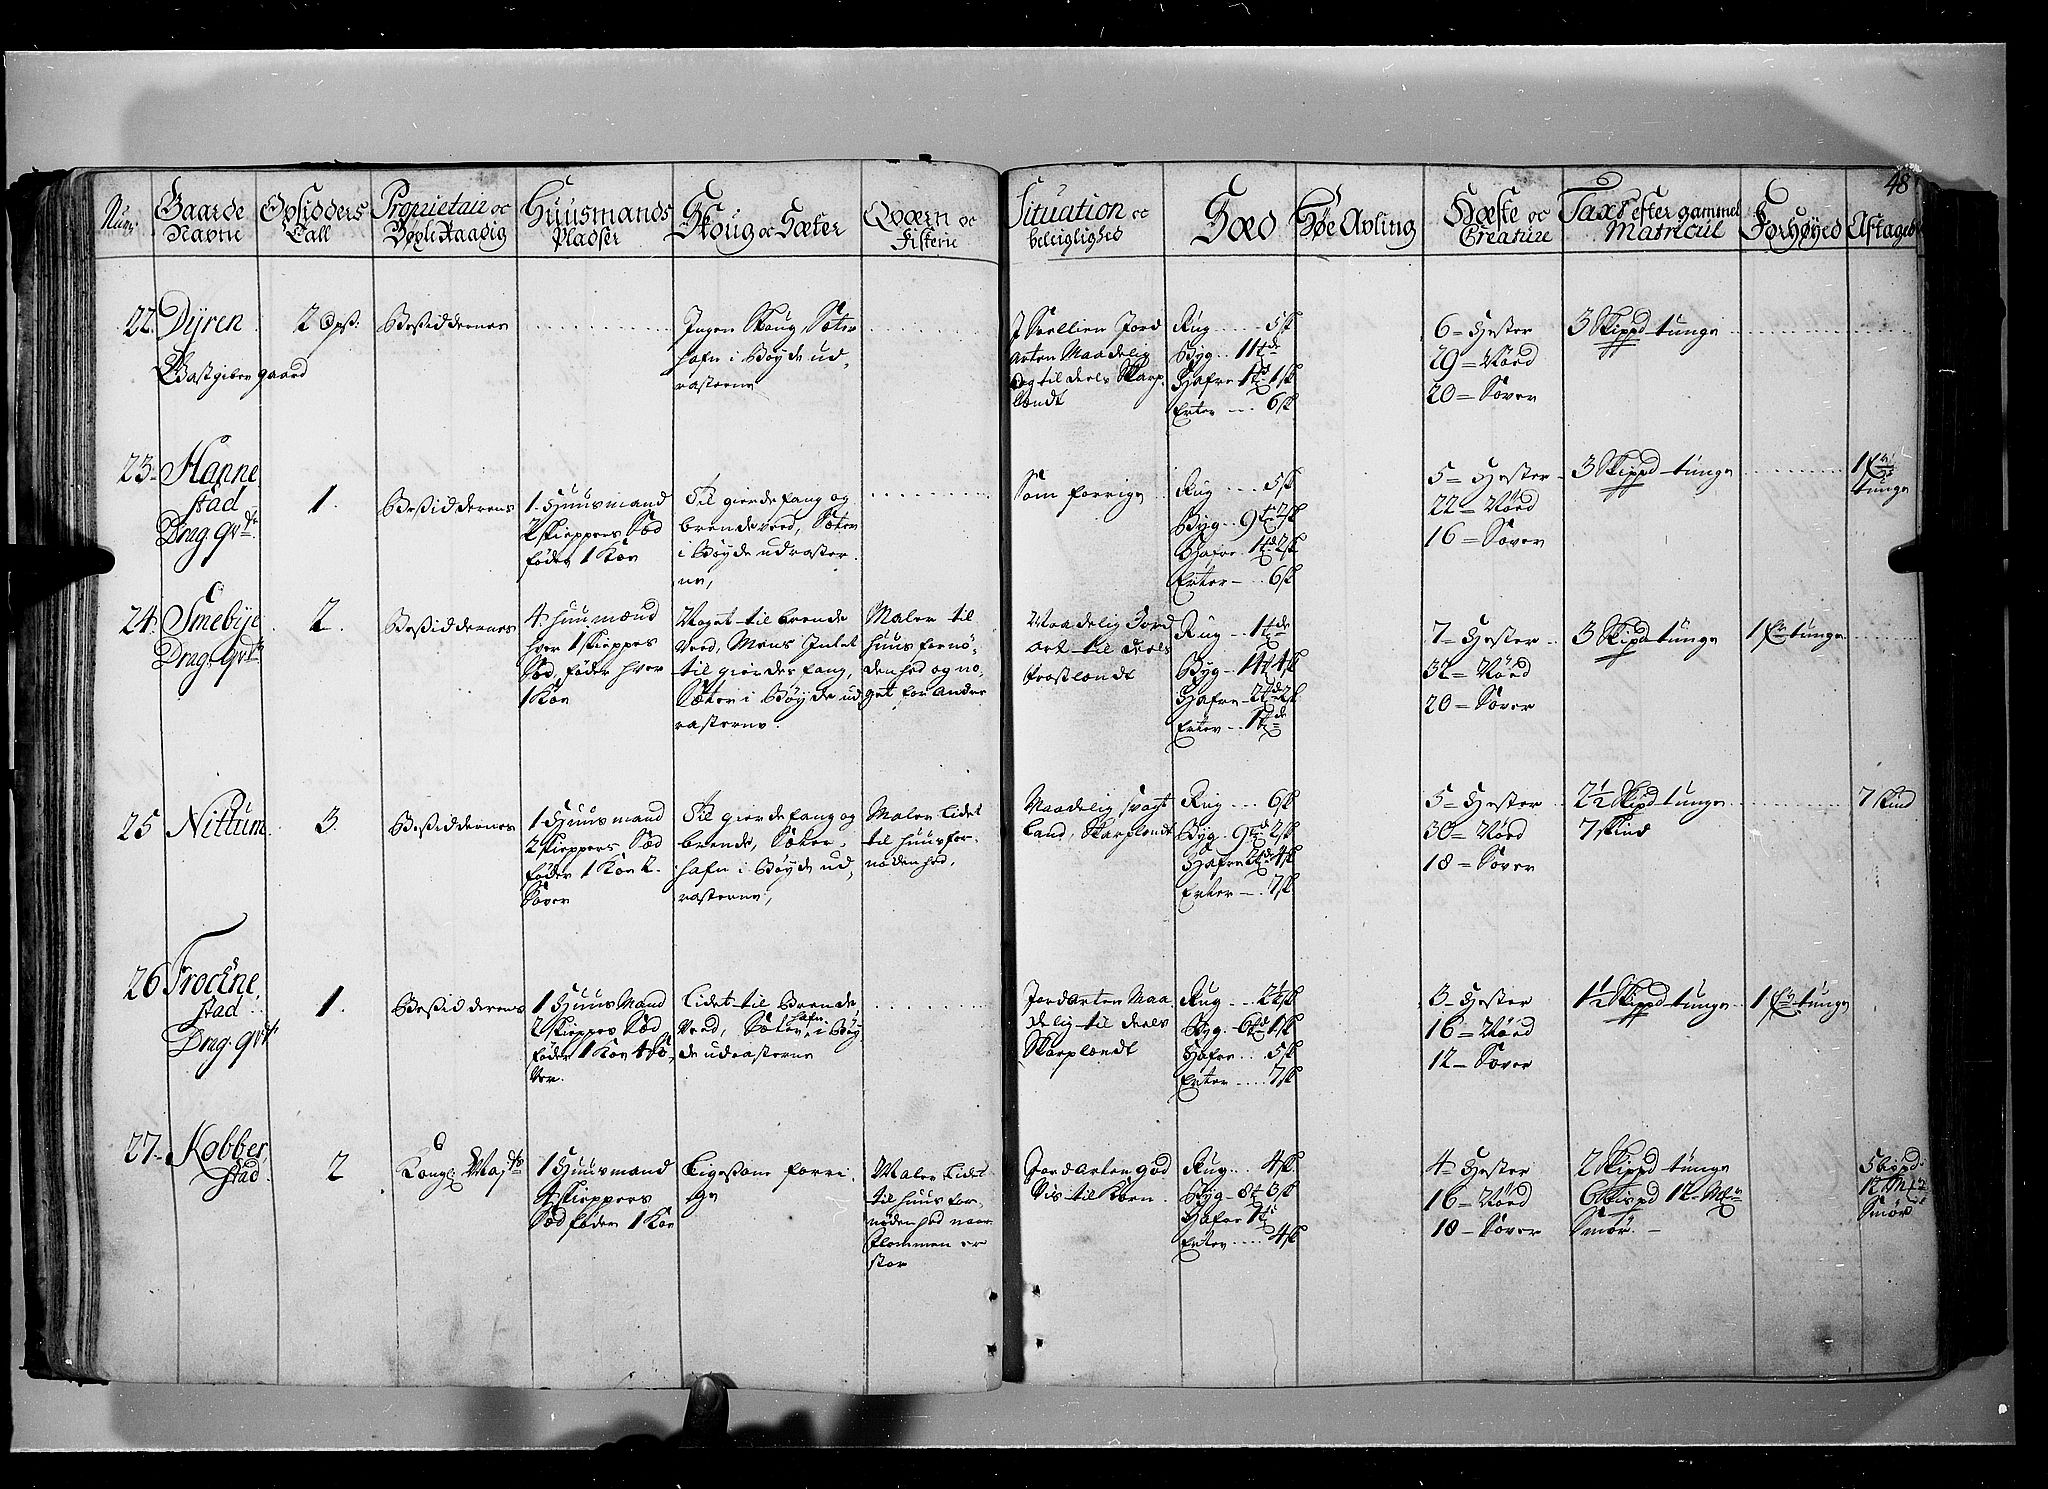 48
Num:
Gaarde Nafne
Opsidders Tall
Proprietair oc Bøgle Raadig
Huusmands Pladser
Skoug oc Sæter
Qværn oc Fisterie
Situation oc beleiglighed
Sæd
Høe Avling
Hæste oc Creature
Taxt efter gammel Matricul
Forhøyed
Aftaged
22. Dÿren
Gastgiber gaard
2 Ops:
Besiddernes
Ingen Skoug, Sæter
hafn i Bøyde ud,
rasterne
I Soellien Jord
arten Maadelig
og til deels Skarp
lændt
Rug ..... 5 sk
Byg .. 11 tde
Hafre 1 td 1 sk
Erter ... 6 sk
6 = Hester
29 = Nöed
20 = Sover
3 Skippd tunge
23. Hanne
stad
Drag. grde.
1.
Besidderens
1. Huusmand
2 skieppers Sæd
føder 1 Koe
Til gierdefang og
brendeved, Sæter
i Bøyde udraster
ne,
Som forrige
Rug .... 5 sk
Byg .. 9 t 2 sk
Hafre. 1 td 2 sk
Erter – .. 6 sk
5 = Hester
22 = Nöed
16 = Sover
3 Skippd tunge
tunge
24. Smebÿe
Drag. grde
2.
Besiddernes
4 huusmænd
hver 1 skieppes
Sæd, føder hver
1 Koe
Noget til brende
Veed, Mens Intet
til gierdesfang,
Sæter i Bøyde ud
rasterne
Maler til
huus fornø,
denhed og no,
get for andre
Maadelig Jord
art til deels
frostlændt
Rug .. 1 tde
Byg – 14 t 4 sk
Hafre – 2 tde 2 sk
Erter ... 1 tde
7 = Hester
32 = Nöed
20 = Sover
3 Skipd tunge
1 Fr tunge
25 Nittum
3.
Besiddernes
1 Huusmand
2 skieppers Sæd
føder 1 Koe 2
Sover
Til gierdefang og
brende, Sæter
hafn i Bøyde ud,
rasterne,
Maler Lidet
til huusfor,
nødenhed,
Maadelig svagt
Land, Skarplændt
Rug ... 6 sk
Byg . 9 td 2 sk
Hafre 2 td 4 sk
Erter – .. 7 sk
5 = Hester
30 = Nöed
18 = Sover
2½ Skipd tunge
7 skind
7 skind
26 Frockne,
stad
Drag. grd.
1.
Besidderens
1 Huus Mand
2 skieppers Sæd
føder 1 Koe 4 So,
ver.
Lidet til Brende,
Veed, Sæter hafn i Bøy
de udrasterne
Jordarten Maa
delig til deels
Skarplændt
Rug ... 2½ sk
Byg. – 6 td 1 sk
Hafre .. 5 sk
Erter .... 7 sk
3 – Hester
16 = Nöed
12 – Sover
1½ Skippd tunge
1 Fr tunge
27. Kobber,
stad
2
Kongl Maysts
1 Huusmand
4 skieppers
Sæd føder 1 Koe
Ligesom forri
ge
Maler Lidet
til huus for,
nødenhed naar
Flommen er
stor
Jordarten god
Vis til Koen
Rug ... 4 sk
Byg – 8 t 3 sk
Hafre 1 td
Erter .... 4 sk
4 = Hester
16 – Nöed
18 – Sover
2 Skippd tunge
6 Lispd 12 Mr
Smör. –
5 bispd
12 Mr
Smör